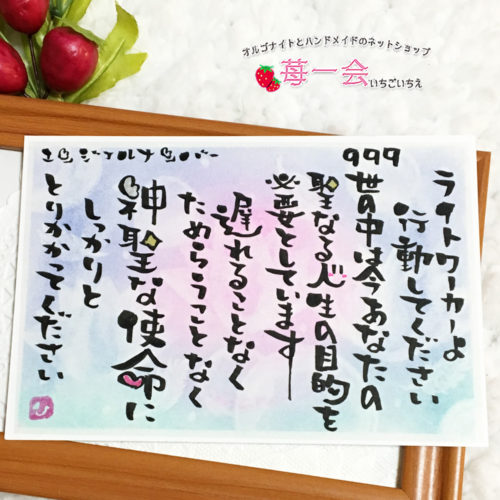 オルゴナイトとハンドメイドのネットショップ
苺一会
いちごいちえ
ライトワーカーよ
行動してください
999
世の中は今あなたの
聖なる人生の目的を
必要としています
遅れることなく
ためらうことなく
神聖な使命に
しっかりと
とりかかってください
エンジェルナンバー